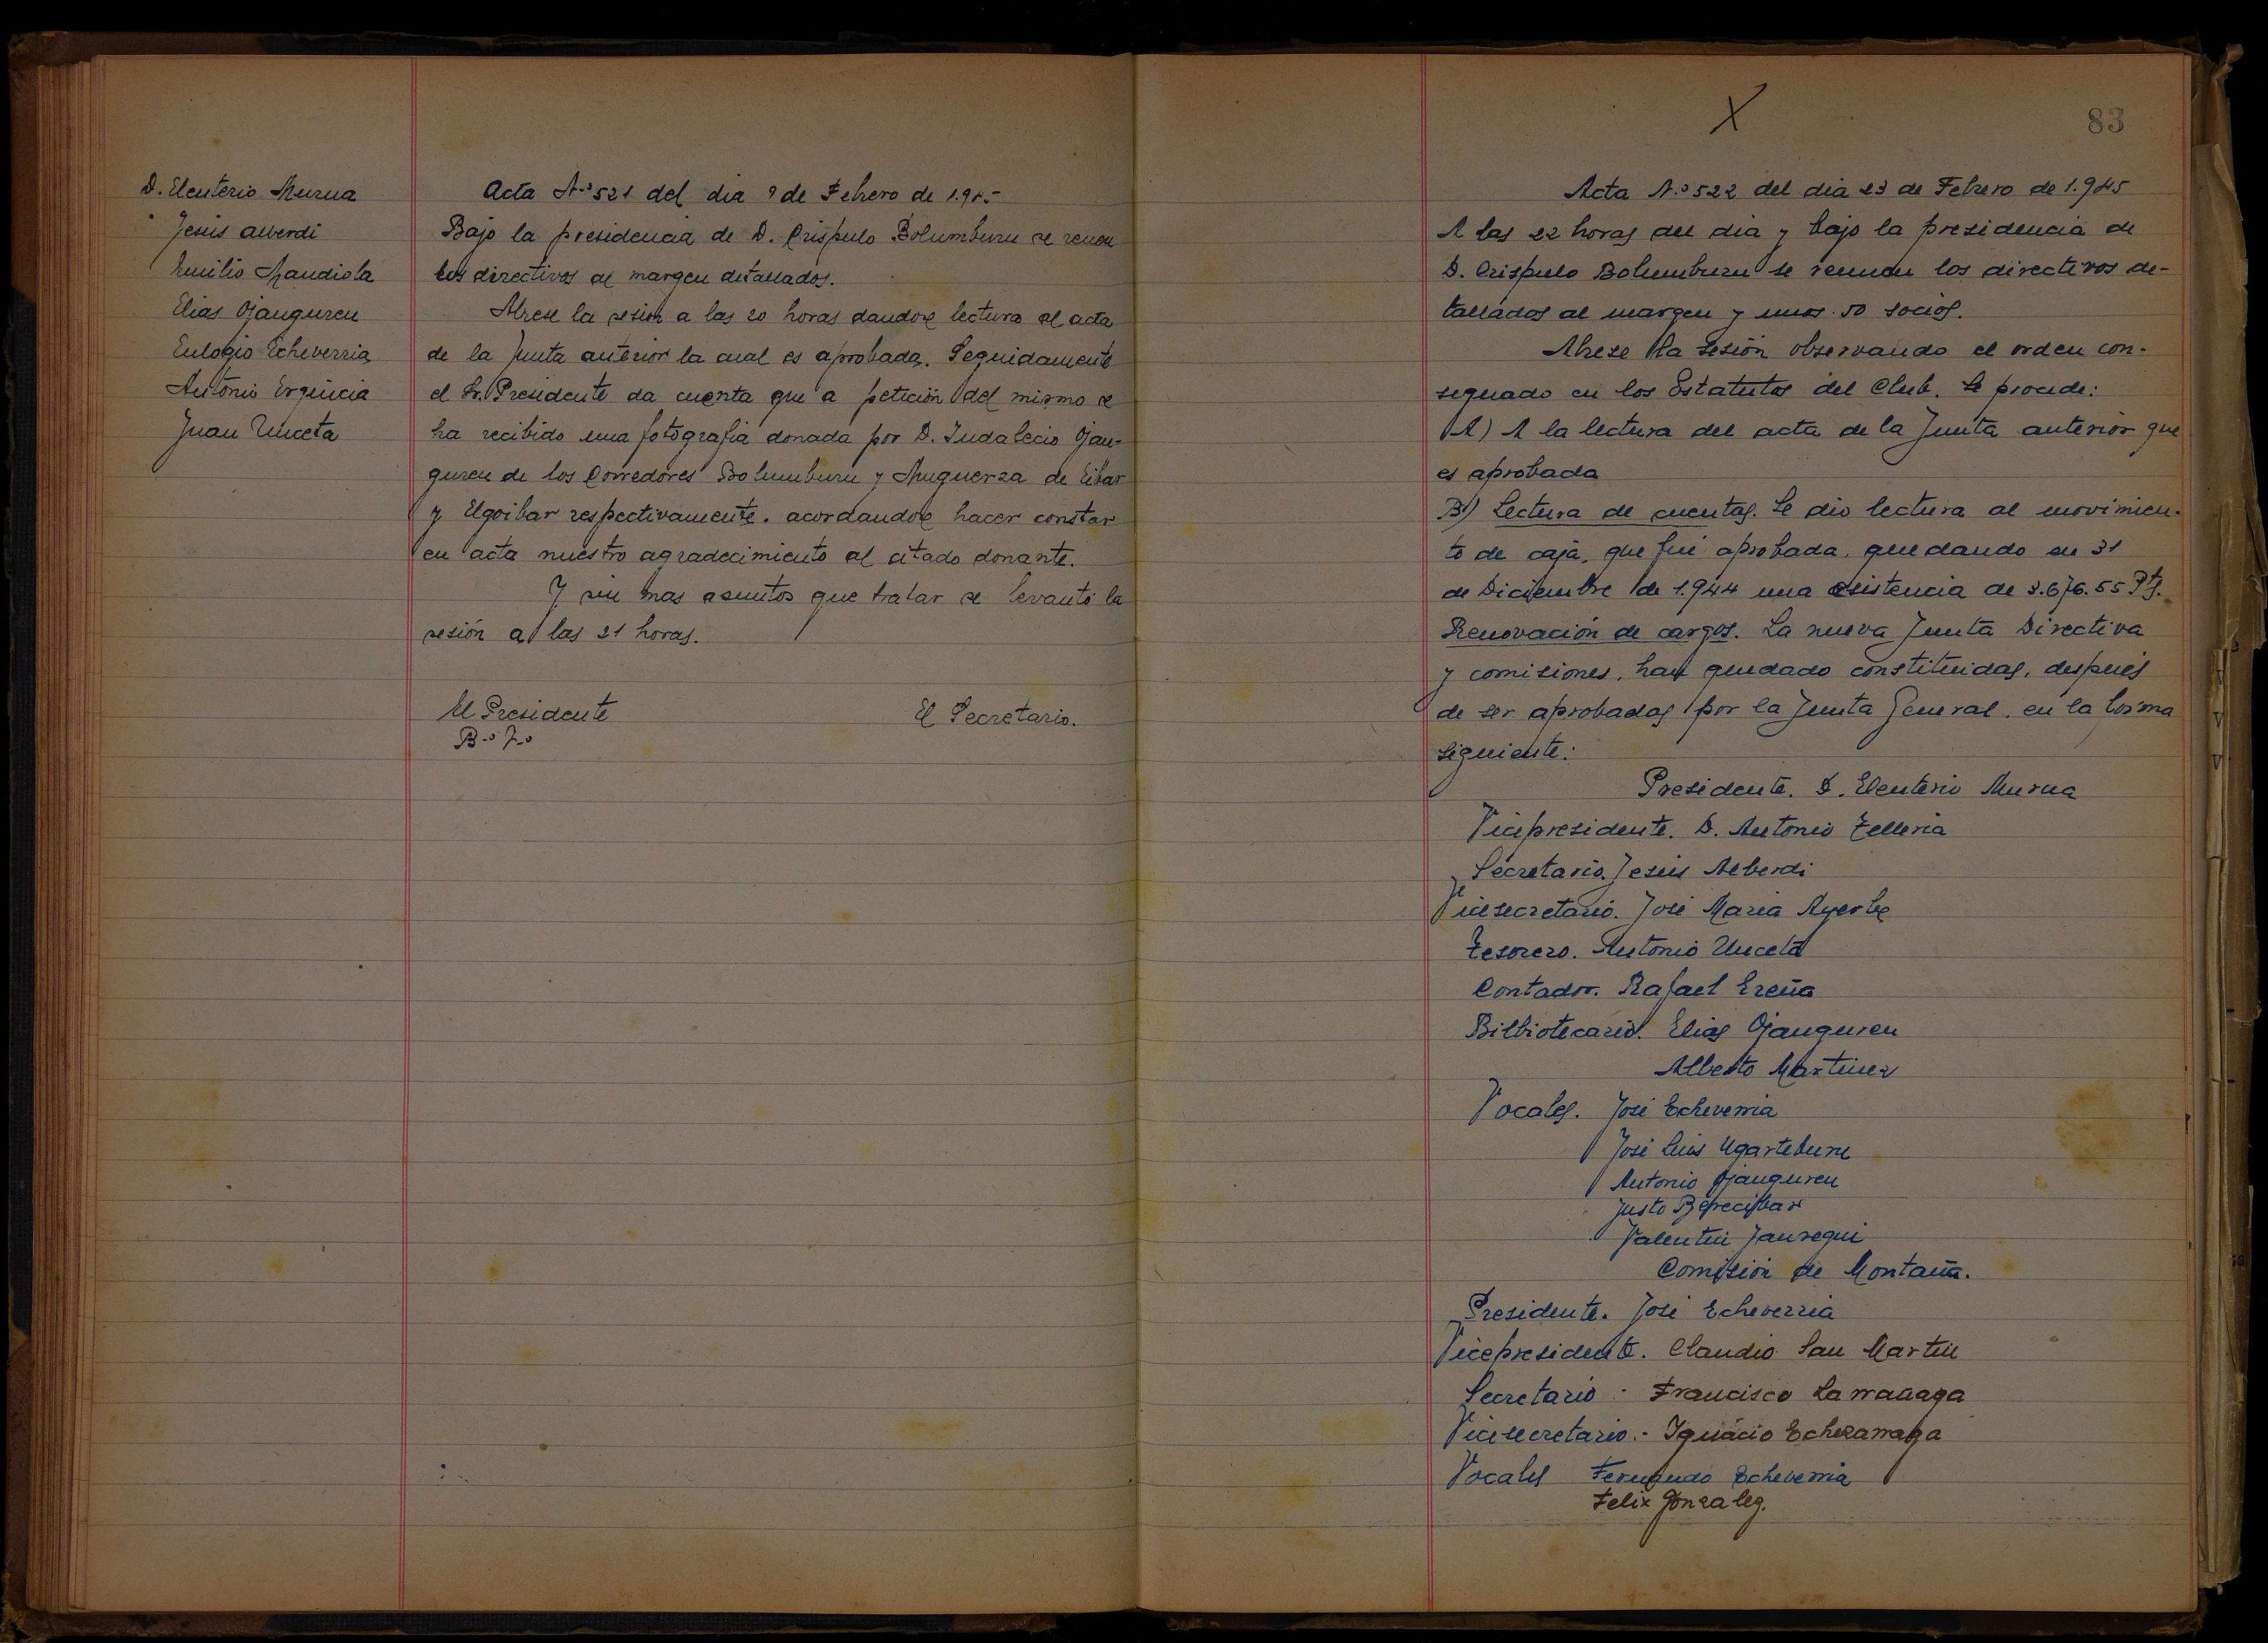 D. Eleuterio Murua
" Jesús Alberdi
Emilio Mandiola
Elias Ojanguren
Eulogio Echeverria
Antonio Erquicia
Juan Unceta
Acta N.º 521 del dia 9 de Febrero de 1.945
Bajo la presidencia de D. Crispulo Bolumburu se reunen
los directivos al margen detallados.
Abrese la sesión a las 20 horas dandose lectura al acta
de la Junta anterior la cual es aprobada. Seguidamente
el Sr. Presidente da cuenta que a petición del mismo se
ha recibido una fotografia donada por D. Indalecio Ojan-
guren de los Corredores Bolumburu y Muguerza de Eibar
y Elgoibar respectivamente. acordandose hacer constar
en acta nuestro agradecimiento al citado donante.
Y sin mas asuntos que tratar se levantó la
sesión a las 21 horas.
El Presidente
El Secretario.
X
83
Acta N.º 522 del dia 23 de Febrero de 1.945
A las 22 horas del dia y bajo la presidencia de
D. Crispulo Bolumburu se reunen los directivos de-
tallados al margen y unos 50 socios.
Abrese la sesión observando el orden con-
segnado en los Estatutos del Club. Se procede:
A) A la lectura del acta de la Junta anterior que
es aprobada
B) Lectura de cuentas. Se dio lectura al movimien-
to de caja, que fué aprobada, quedando en 31
de Diciembre de 1.944 una esistencia de 3.676.55 Pts.
Renovación de cargos. La nueva Junta Directiva
y comisiones, han quedado constituidas, después
de ser aprobadas por la Junta General, en la forma
siguiente:
Presidente. D. Eleuterio Murua
Vicepresidente. D. Antonio Telleria
Secretario. Jesús Alberdi
Vicesecretario. José Maria Ayerbe
Tesorero. Antonio Unceta
Contador. Rafael Ereña
Bilbiotecario. Elias Ojanguren
Alberto Martinez
Vocales. José Echeverria
José Luis Ugarteburu
Antonio Ojanguren
Justo Berecibar
Valentin Jauregui
Comisión de Montaña.
Presidente. José Echeverria
Vicepresidente. Claudio San Martin
Secretario - Francisco Larrañaga
Vicesecretario.- Ignacio Echezarraga
Vocales Fernando Echeverria
Felix Gonzalez.